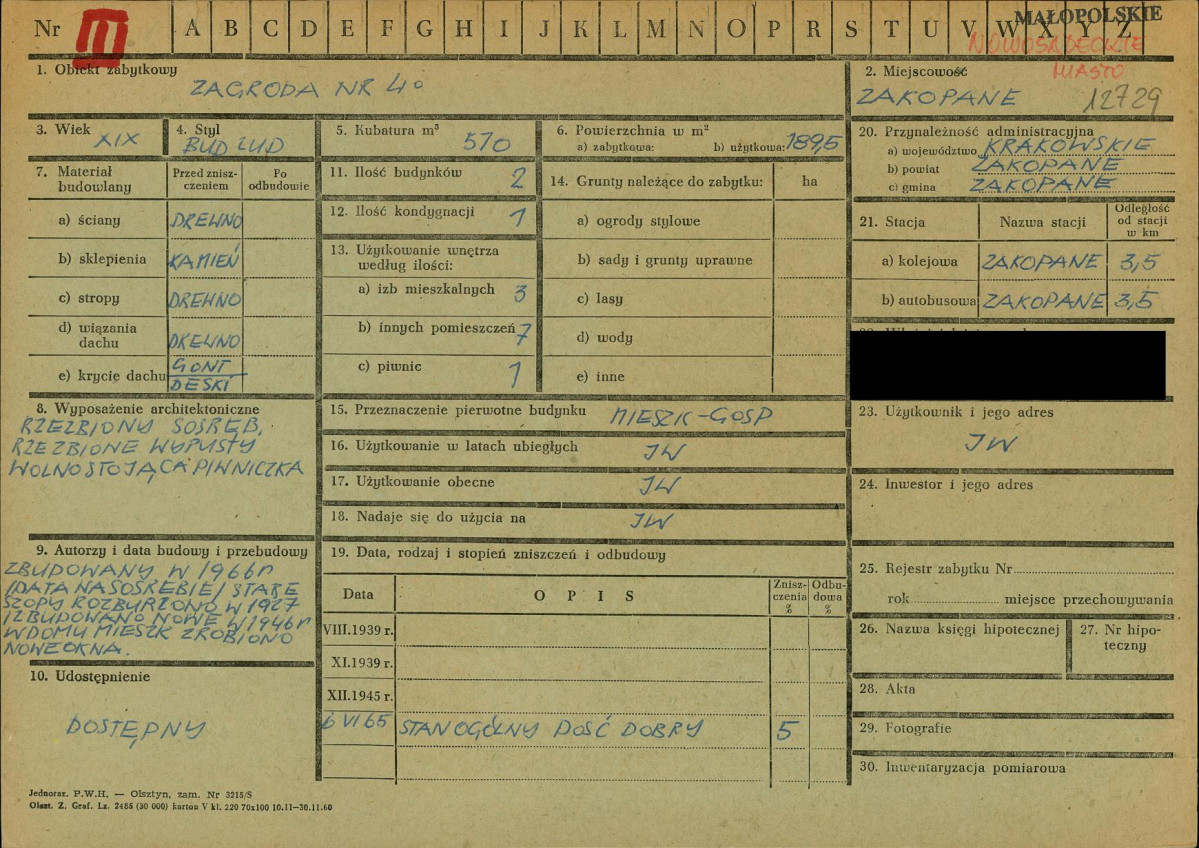 Nr III A B C D E F G H I J K L M N O P R S T U V W X Y Z MAŁOPOLSKIE
NOWOSĄDECKIE
MIASTO
1. Obiekt zabytkowy
ZAGRODA NR 40
2. Miejscowość
ZAKOPANE 12729
3. Wiek
XIX
4. Styl
BUD LUD
5. Kubatura m³
510
6. Powierzchnia w m²
a) zabytkowa: b) użytkowa: 189,5
20. Przynależność administracyjna
a) województwo KRAKOWSKIE
b) powiat ZAKOPANE
c) gmina ZAKOPANE
7. Materiał budowlany
Przed zniszczeniem
Po odbudowie
a) ściany DREWNO
b) sklepienia KAMIEŃ
c) stropy DREWNO
d) wiązania dachu DREWNO
e) krycie dachu GONT
DESKI
11. Ilość budynków 2
12. Ilość kondygnacji 1
13. Użytkowanie wnętrza
według ilości:
a) izb mieszkalnych 3
b) innych pomieszczeń 7
c) piwnic 1
14. Grunty należące do zabytku: ha
a) ogrody stylowe
b) sady i grunty uprawne
c) lasy
d) wody
e) inne
21. Stacja Nazwa stacji Odległość od stacji w km
a) kolejowa ZAKOPANE 3,5
b) autobusowa ZAKOPANE 3,5
8. Wyposażenie architektoniczne
RZEZBIONY SOSRĘB,
RZEZBIONE WYPUSTY
WOLNOSTOJĄCA PIWNICZKA
15. Przeznaczenie pierwotne budynku MIESZK-GOSP
16. Użytkowanie w latach ubiegłych JW
17. Użytkowanie obecne JW
18. Nadaje się do użycia na JW
23. Użytkownik i jego adres
JW
24. Inwestor i jego adres
9. Autorzy i data budowy i przebudowy
ZBUDOWANY W 1966r
/DATA NA SOSREBIE/ STARE
SZOPY ROZBURZONO W 1927
I ZBUDOWANO NOWE W 1946r
W DOMU MIESZK ZROBIONO
NOWE OKNA.
19. Data, rodzaj i stopień zniszczeń i odbudowy
Data O P I S Zniszczenia % Odbudowa %
VIII.1939 r.
XI.1939 r.
XII.1945 r.
6 VI 65 STAN OGÓLNY DOŚĆ DOBRY 5
10. Udostępnienie
DOSTĘPNY
25. Rejestr zabytku Nr
rok miejsce przechowywania
26. Nazwa księgi hipotecznej
27. Nr hipoteczny
28. Akta
29. Fotografie
30. Inwentaryzacja pomiarowa
Jednoraz. P.W.H. — Olsztyn, zam. Nr 3215/S
Olszt. Z. Graf. Lz. 2486 (30 000) karton V kl. 220 70x100 10.11—30.11.60